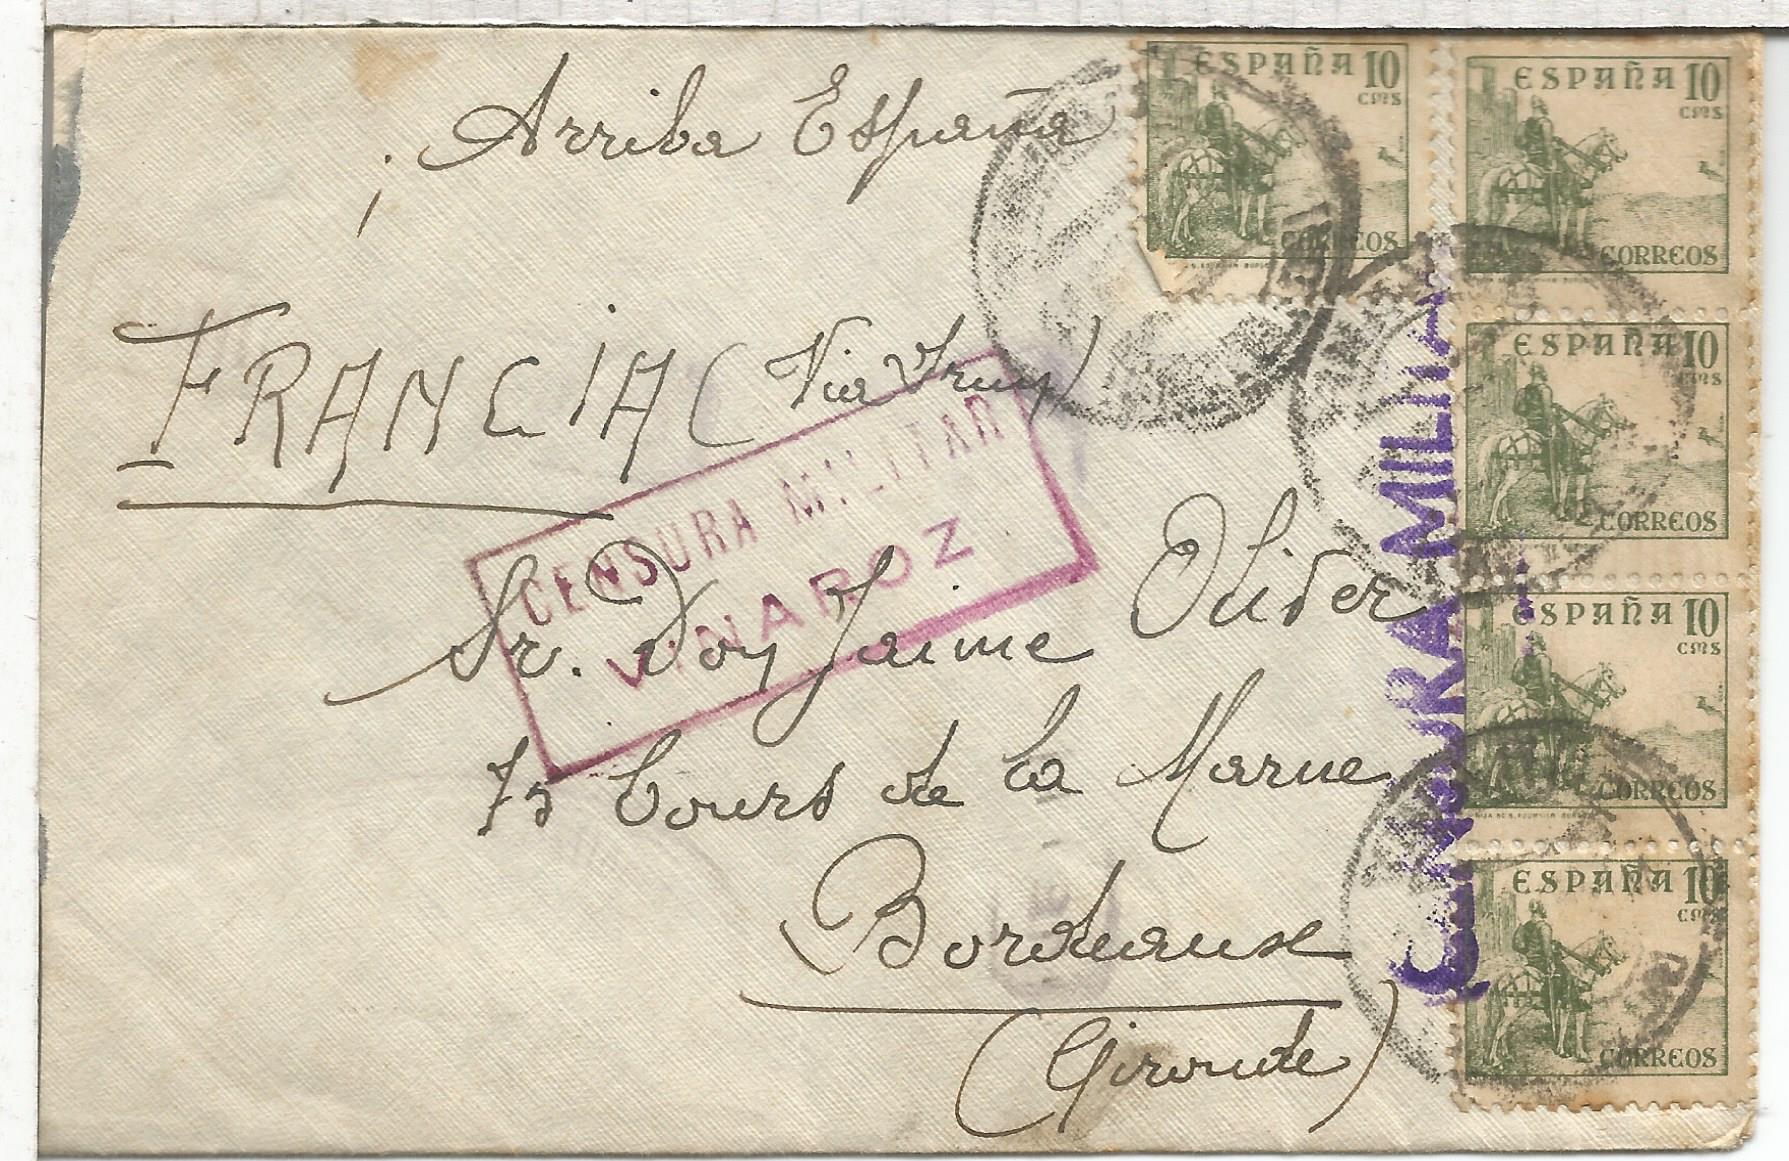 ¡ Arriba España
FRANCIA (Via Irun)
CENSURA MILITAR
VINAROZ
Sr. Don Jaime Oliver
75 Cours de la Marne
Bordeaux
(Gironde)
ESPAÑA 10
CMS
CORREOS
ESPAÑA 10
CMS
CORREOS
ESPAÑA 10
CMS
CORREOS
ESPAÑA 10
CMS
CORREOS
ESPAÑA 10
CMS
CORREOS
CENSURA MILITAR